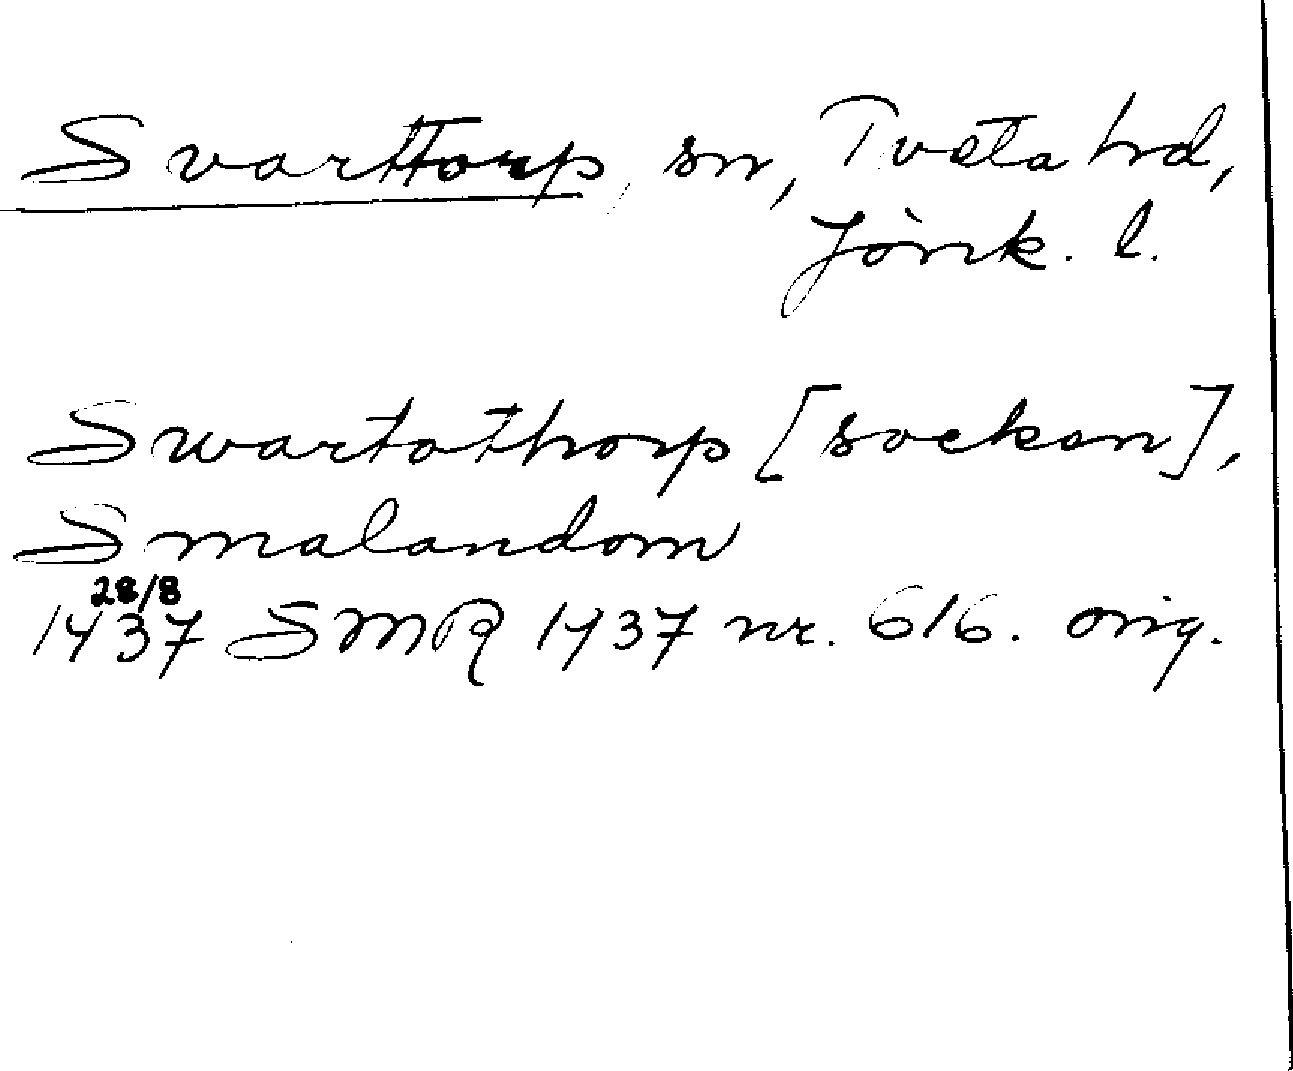 Svarttorp, sn, Tveta hd,
Jönk. l.
Swartathorp [socken],
Smalandom
28/8
1437 SMR 1437 nr. 616. orig.